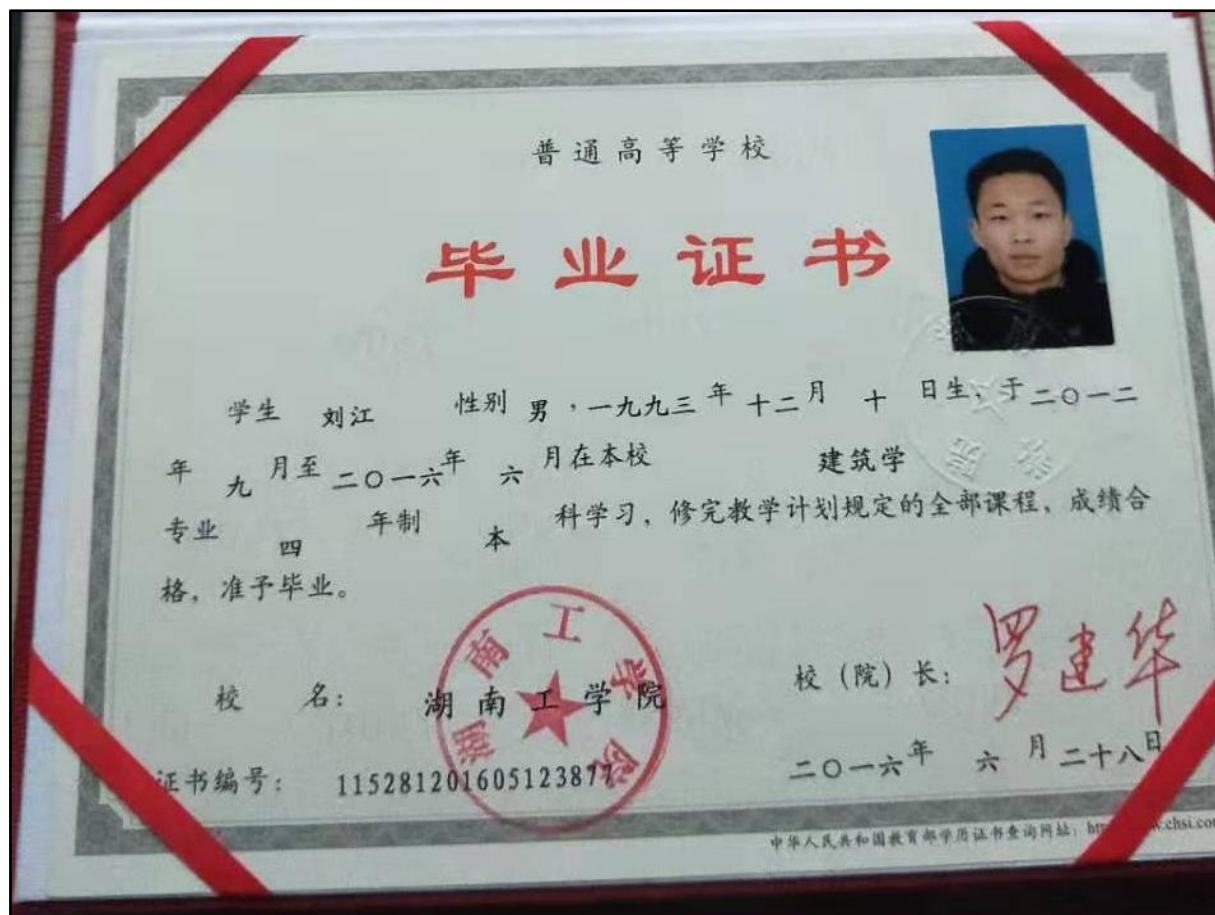 普通高等学校
毕业证书
学生 刘江 性别 男,一九九三年十二月十日生,于二〇一二
年九月至二〇一六年六月在本校 建筑学
专业 四 年制 本 科学习,修完教学计划规定的全部课程,成绩合
格,准予毕业。
校 名: 湖南工学院
校(院)长: 罗建华
湖南工学院
证书编号: 115281201605123877
二〇一六年六月二十八日
中华人民共和国教育部学历证书查询网址: